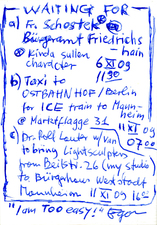 WAITING FOR
a) Fr. Schostek @
Bürgeramt Friedrichs-
hain
@ Kinda sullen
character
6 XI 09
11 30
b) Taxi to
OSTBAHNHOF/Berlin
for ICE train to Mann-
heim
@ Marktflagge 31
11 XI 09
07 00
c) Dr. Rolf Lauter w/Van
to bring Lightsculpters
from Beilstr. 26 (my studio
to Bürgerhaus Weststadt
Mannheim 11 XI 09 16 00
"I am TOO easy!"